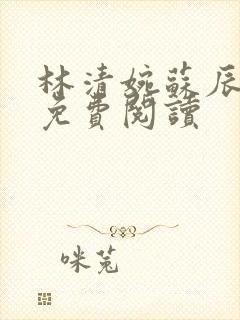 林清婉蘇辰
免費閱讀
咪兔